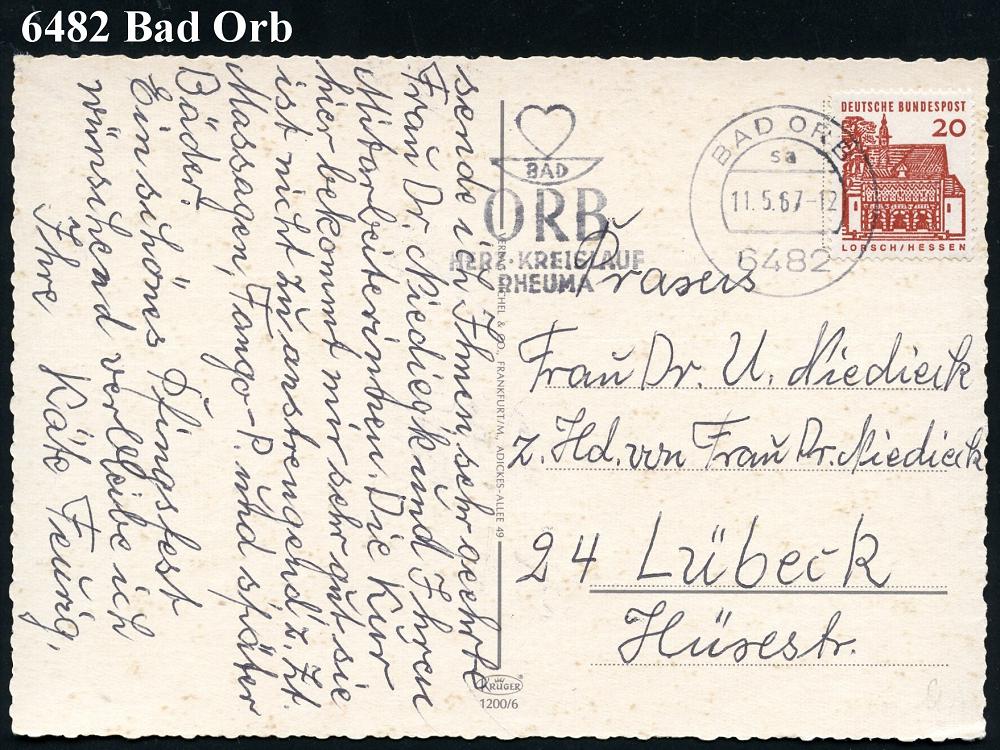 6482 Bad Orb
sende ich Ihnen sehr geehrte
Frau Dr. Niedieck und Ihren
Mitarbeiterinnen. Die Kur
hier bekommt mir sehr gut sie
ist nicht zu anstrengend z. Zt.
Massagen, Fango-P. und später
Bäder!
Ein schönes Pfingstfest
wünschend verbleibe ich
Ihre Käte
BAD
ORB
HERZ·KREISLAUF
RHEUMA
BAD ORB
sa
11.5.67-12
6482
DEUTSCHE BUNDESPOST
20
LORSCH/HESSEN
Praxis
Frau Dr. U. Niedieck
z. Hd. von Frau Dr. Niedieck
24 Lübeck
Hüxestr.
CHEL & CO., FRANKFURT/M., ADICKES-ALLEE 49
KRÜGER
1200/6